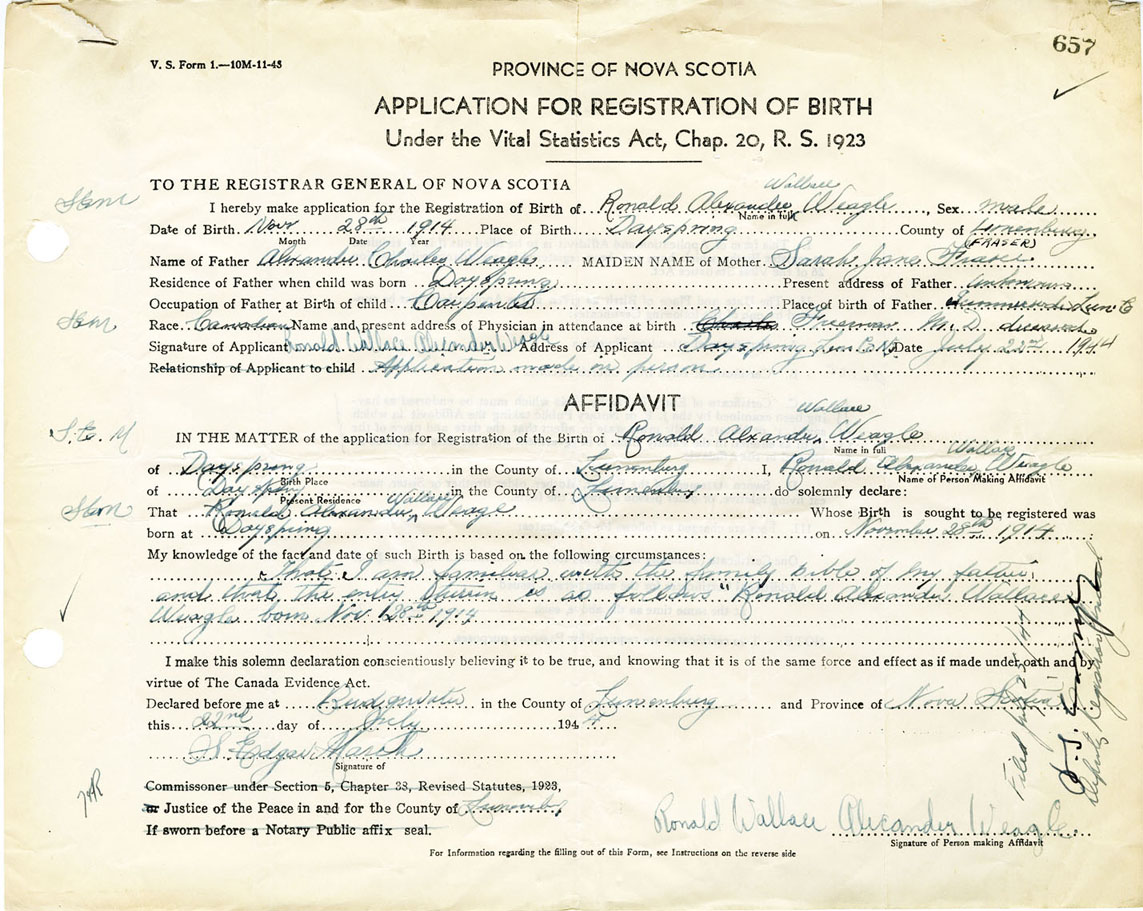 657
V. S. Form 1.—10M-11-43
PROVINCE OF NOVA SCOTIA
APPLICATION FOR REGISTRATION OF BIRTH
Under the Vital Statistics Act, Chap. 20, R. S. 1923
TO THE REGISTRAR GENERAL OF NOVA SCOTIA
Wallace
SEM I hereby make application for the Registration of Birth of Ronald Alexander Weagle, Sex male
Name in full
Date of Birth Nov 28th 1914 Place of Birth Dayspring County of Lunenburg
Month Date Year
(FRASER)
Name of Father Alexander Charles Weagle MAIDEN NAME of Mother Sarah Jane Fraser
Residence of Father when child was born Dayspring Present address of Father unknown
Occupation of Father at Birth of child Carpenter Place of birth of Father Lun. Co
SEM Race Canadian Name and present address of Physician in attendance at birth Charles Freeman M.D. deceased
Signature of Applicant Ronald Wallace Alexander Weagle Address of Applicant Dayspring Lun Co NS Date July 22nd 1944
Relationship of Applicant to child Application made in person
AFFIDAVIT
Wallace
S.E.M IN THE MATTER of the application for Registration of the Birth of Ronald Alexander Weagle
Name in full
Wallace
of Dayspring in the County of Lunenburg I, Ronald Alexander Weagle
Birth Place
Name of Person Making Affidavit
of Dayspring in the County of Lunenburg do solemnly declare:
Present Residence
Wallace
SEM That Ronald Alexander Weagle Whose Birth is sought to be registered was
born at Dayspring on November 28th 1914
My knowledge of the fact and date of such Birth is based on the following circumstances:
That I am familiar with the family bible of my father
and that the entry therein is as follows "Ronald Alexander Wallace
Weagle born Nov. 28th 1914
I make this solemn declaration conscientiously believing it to be true, and knowing that it is of the same force and effect as if made under oath and by
virtue of The Canada Evidence Act.
Declared before me at Bridgewater in the County of Lunenburg and Province of Nova Scotia
this 22nd day of July 1944
S. Edgar March
Signature of
Commissoner under Section 5, Chapter 38, Revised Statutes, 1923,
or Justice of the Peace in and for the County of Lunenburg
If sworn before a Notary Public affix seal.
Ronald Wallace Alexander Weagle
Signature of Person making Affidavit
For Information regarding the filling out of this Form, see Instructions on the reverse side
Filed July 22/44
Deputy Registrar